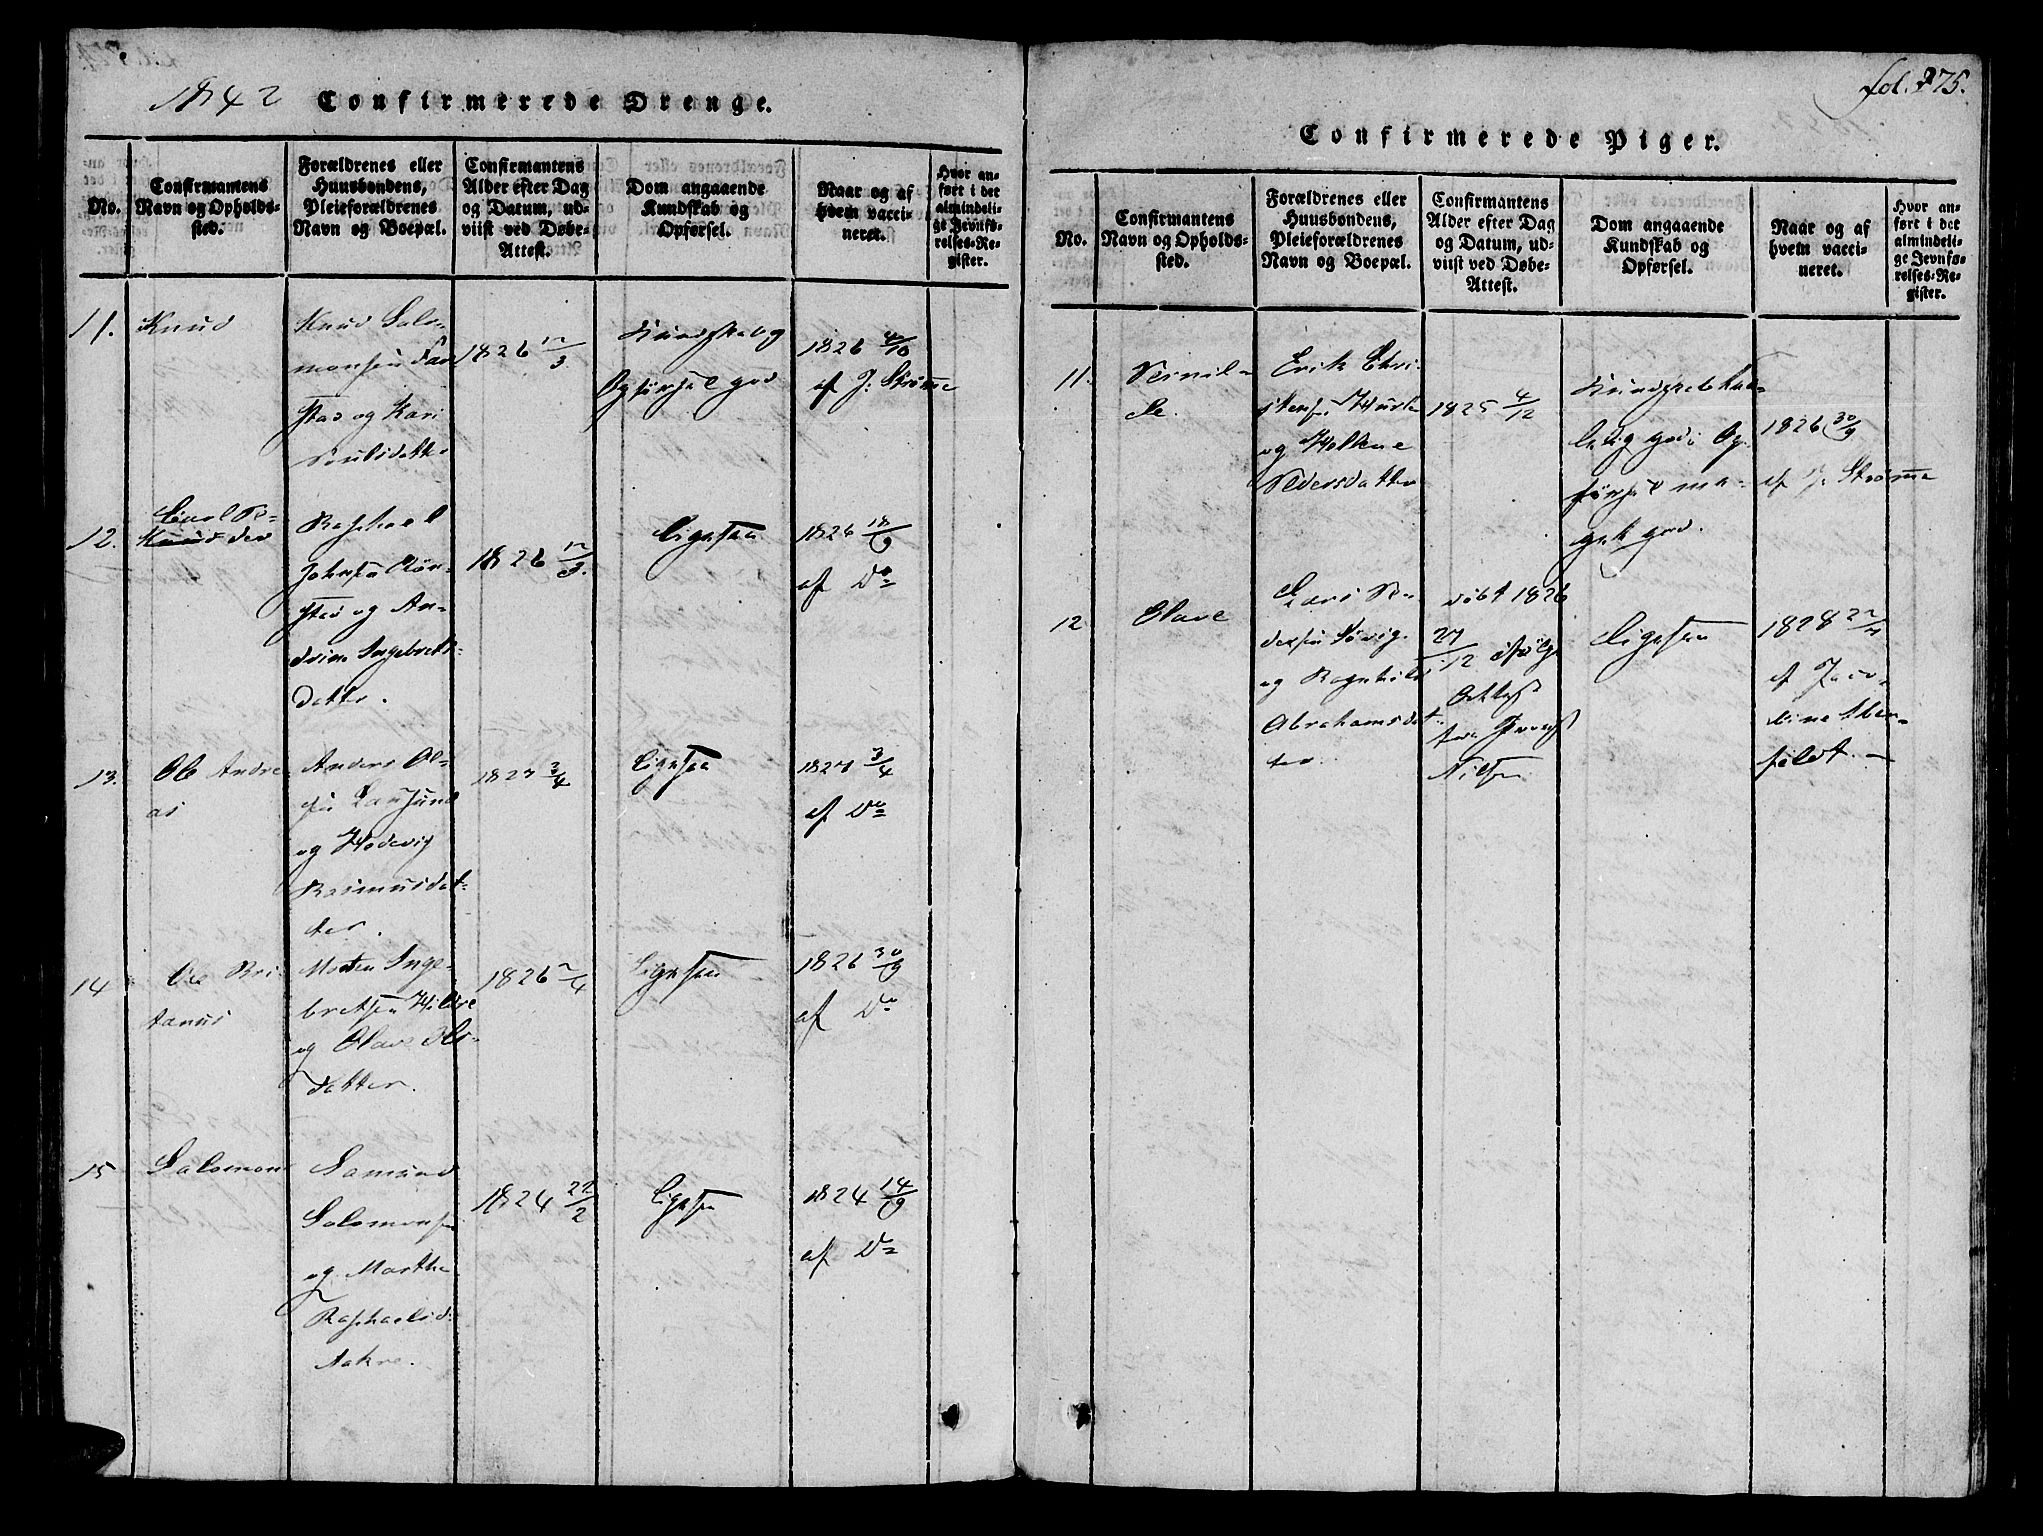 1842 Confirmerede Drenge.
No.
Confirmantens
Navn og Opholds-
sted.
Forældrenes eller
Huusbondens,
Pleieforældrenes
Navn og Boepæl.
Confirmantens
Alder efter Dag
og Datum, ud-
viist ved Døbe-
Attest.
Dom angaaende
Kundskab og
Opførsel.
Naar og af
hvem vacci-
neret.
Hvor an-
ført i det
almindeli-
ge Jevnfø-
relses-Re-
gister.
11.
Knud
Knud Salo-
monsen
og Kari
1826 12/3
Kundskab og
Opførsel god
1826 4/10
af J: Strømme
12.
Carl Pe-
Knud der
Raphael
Johnsen
og An-
drine Ingebrets-
datter.
1826 12/3.
Ligesaa
1826 18/9
af Do
13.
Ole Andre
as
Anders Ol-
sen
og Hedevig
Rasmusdat-
ter.
1827 3/4
Ligesaa
1827 3/4
af Do
14
Ole Bri-
tanus
Morten Inge-
bretsen Hildre
og Olave Ols-
datter.
1826 2/4
Ligesaa
1826 30/9
af Do
15
Salomon
Samund
Salomonsen
og Marthe
Raphaelsd:
Aakre.
1824 22/2
Ligesaa
1824 14/9
af Do
fol. 275.
Confirmerede Piger.
No.
Confirmantens
Navn og Opholds-
sted.
Forældrenes eller
Huusbondens,
Pleieforældrenes
Navn og Boepæl.
Confirmantens
Alder efter Dag
og Datum, ud-
viist ved Døbe-
Attest.
Dom angaaende
Kundskab og
Opførsel.
Naar og af
hvem vacci-
neret.
Hvor an-
ført i det
almindeli-
ge Jevnfø-
relses-Re-
gister.
11.
Pernil-
le.
Erik Chri-
stensen
og
Pedersdatter
1825 4/12
Kundskab taa-
lelig god, Op-
førsel me-
get god.
1826 30/9
af J: Strømme
12
Olave
Lars Pe-
dersen Søvig
og Ragnhild
Abrahamsdat-
ter
døbt 1826
27/12 ifølge
Attest
fra Provst
Nilsen
Ligesaa
1828
af Jaco-
bine Aber-
føldt. —